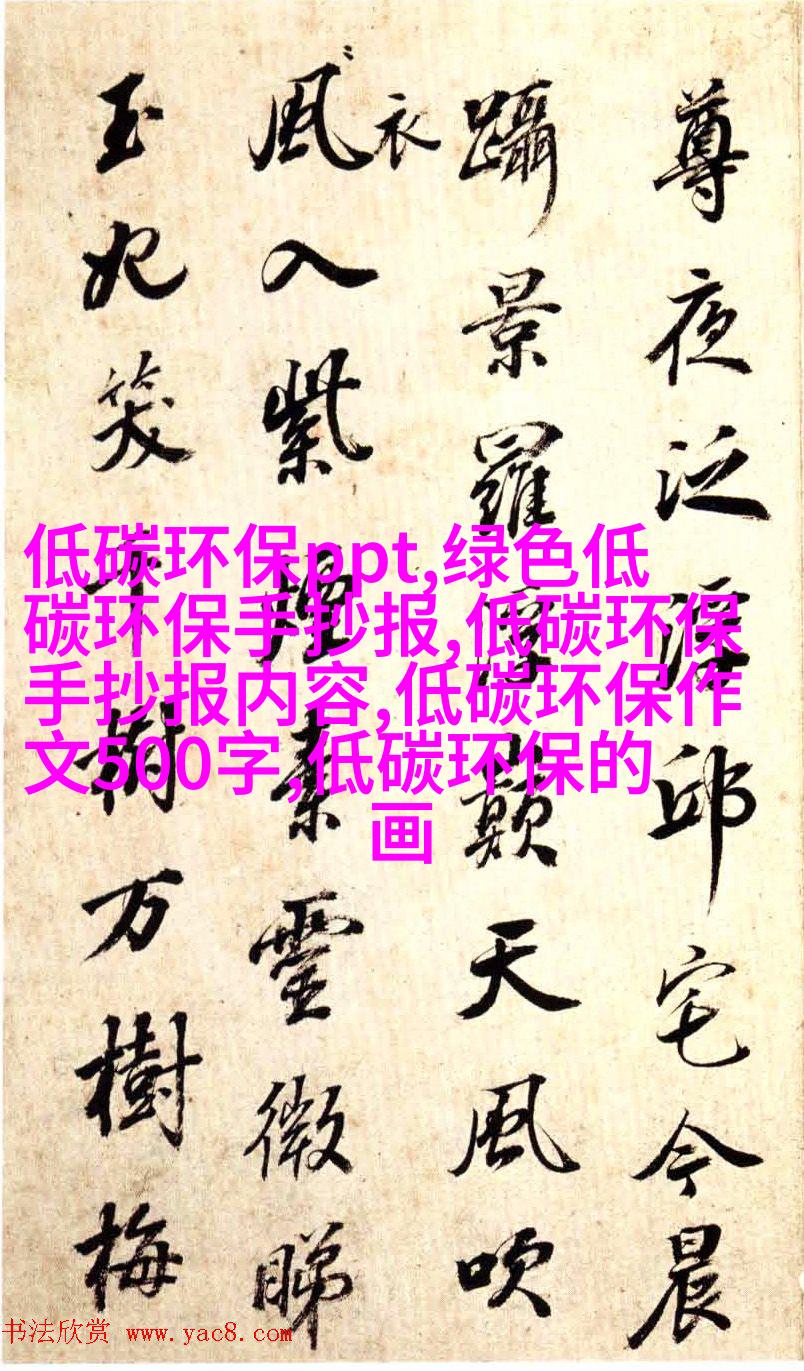 尊夜泛邱宅今晨
躡景羅浮巔天風吹
衣
風入紫素靈微睇
玉妃笑千樹万樹梅
低碳环保ppt,绿色低
碳环保手抄报,低碳环保
手抄报内容,低碳环保作
文500字,低碳环保的
画
书法欣赏 www.yac8.com